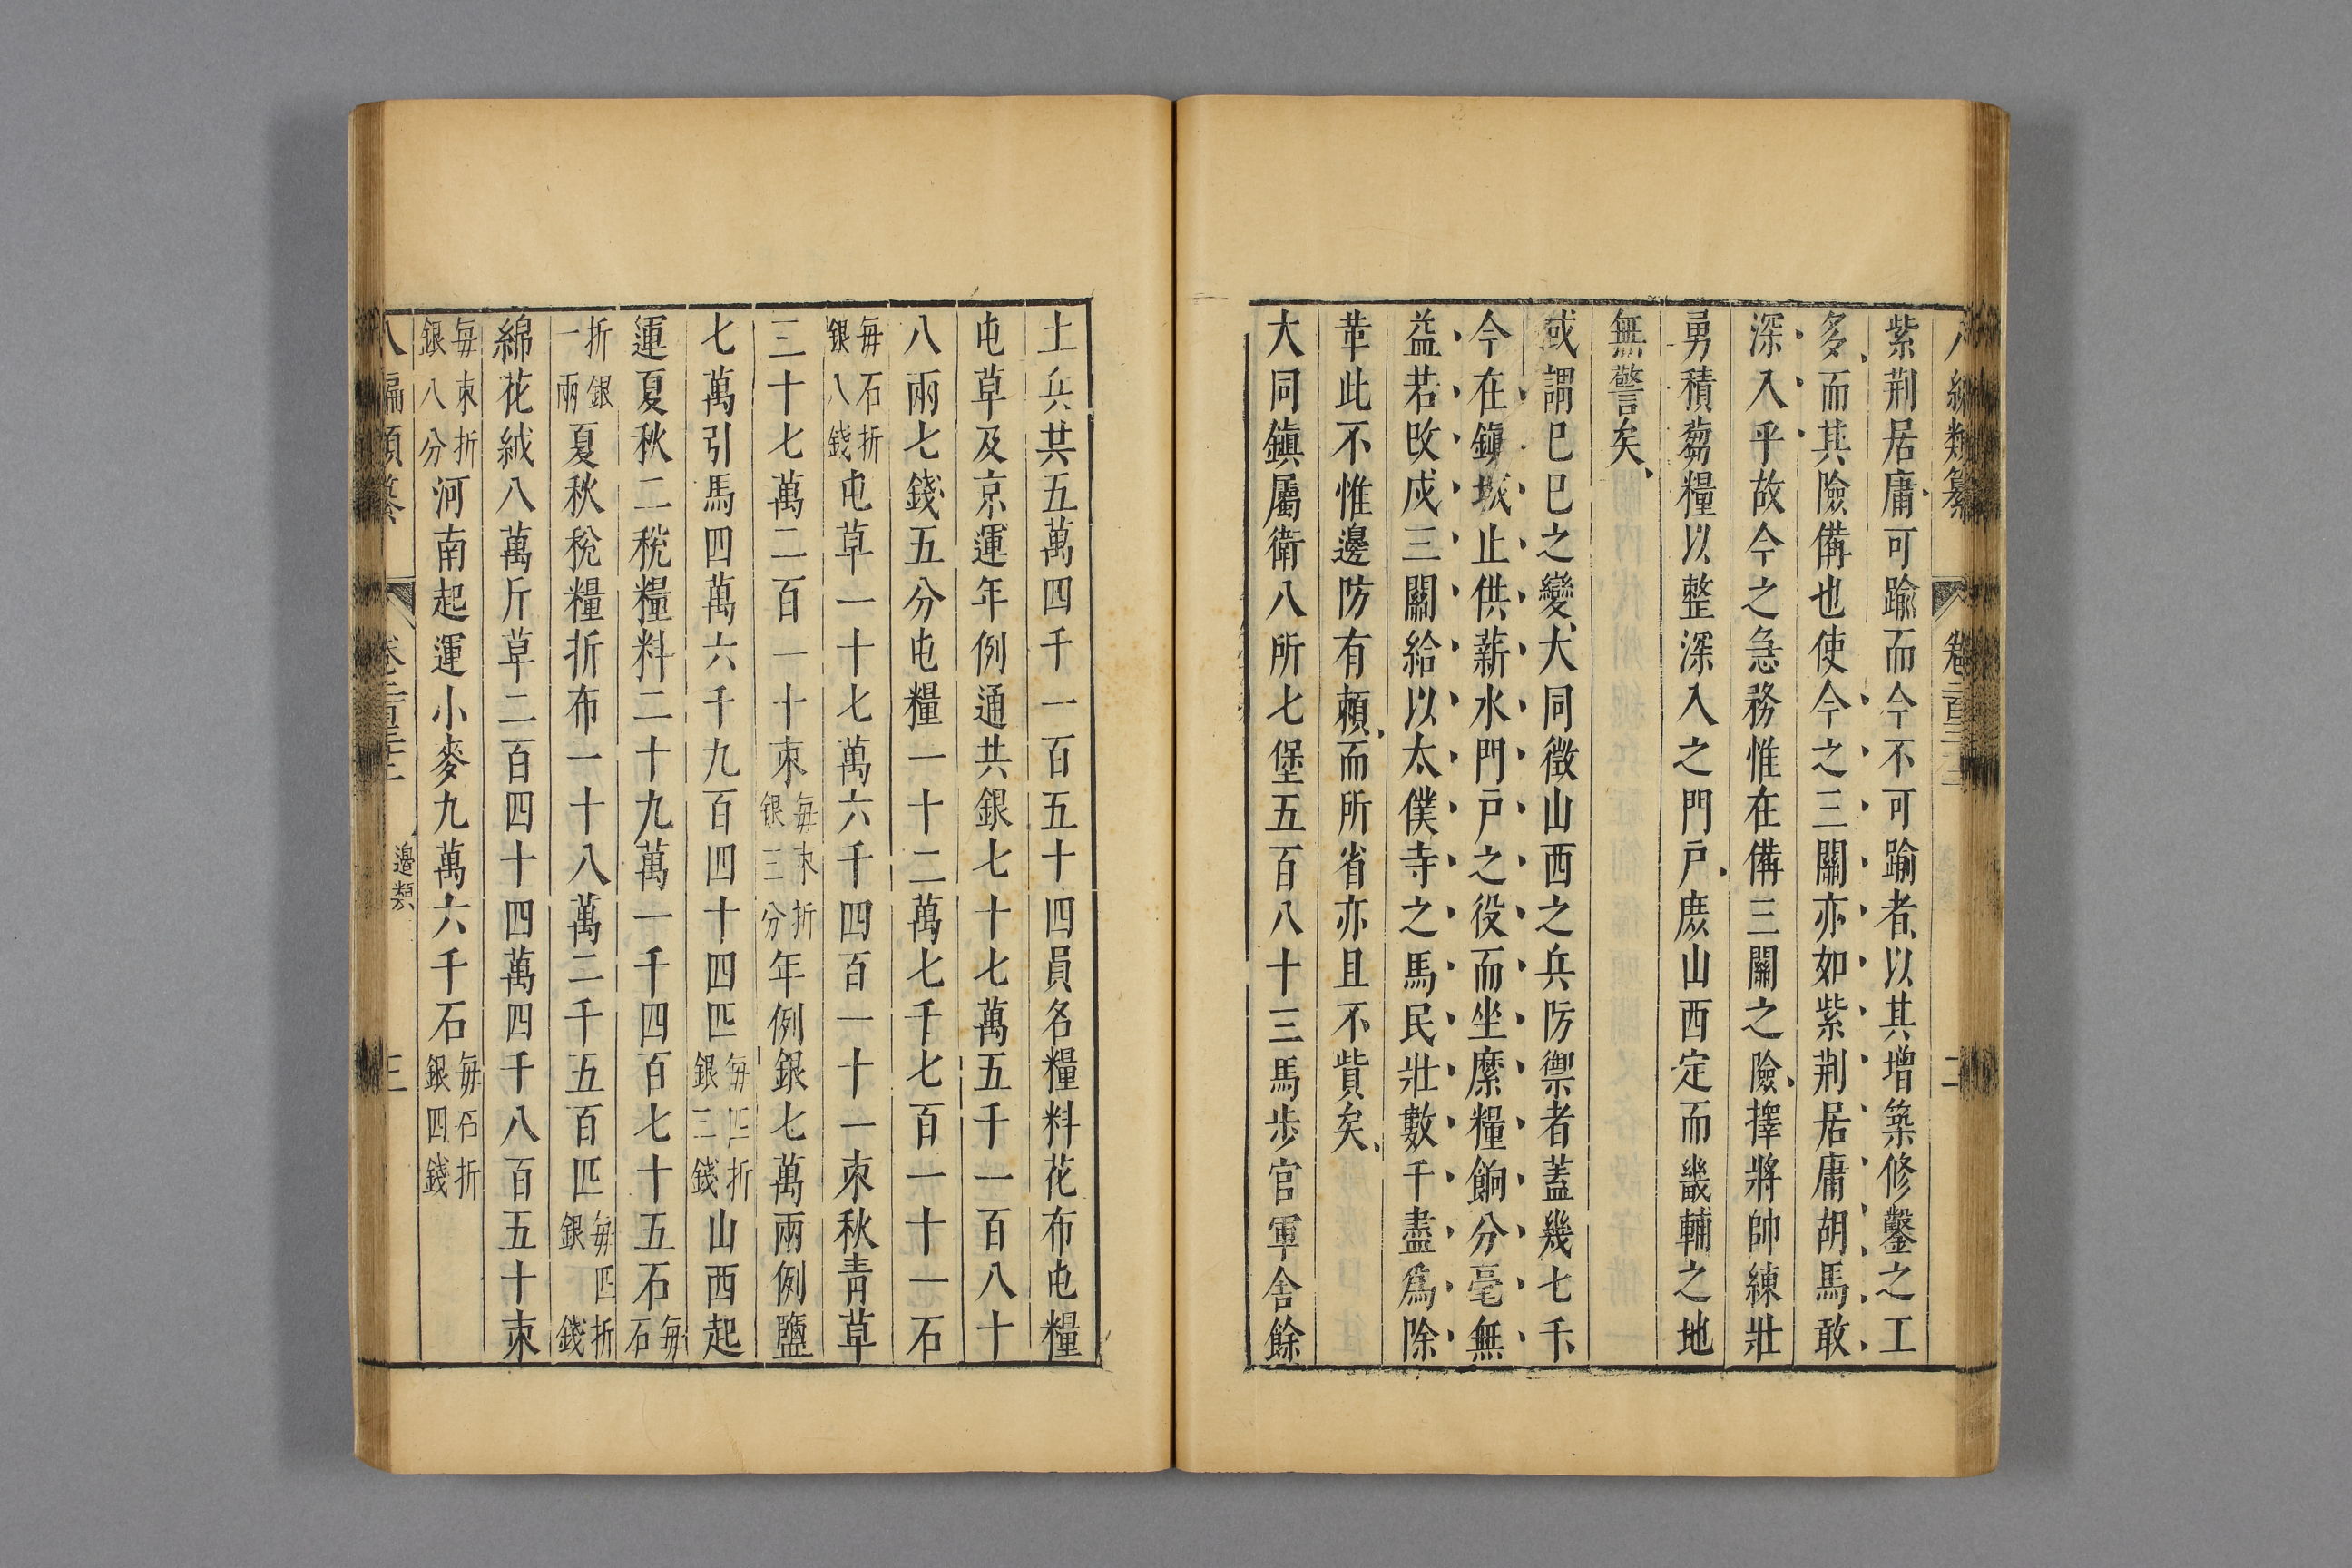 紫荆居庸可踰而今不可踰者以其增築修鑿之工
多而其險備也使今之三關亦如紫荆居庸胡馬敢
深入乎故今之急務惟在備三關之險擇將帥練壯
勇積蒭糧以整深入之門戸庶山西定而畿輔之地
無警矣
或謂巳巳之變大同徵山西之兵防禦者蓋幾七千
今在鎮城止供薪水門戸之役而坐縻糧餉分毫無
益若改戍三關給以太僕寺之馬民壯數千盡爲除
革此不惟邊防有賴而所省亦且不貲矣
大同鎮屬衛八所七堡五百八十三馬歩官軍舎餘
土兵共五萬四千一百五十四員名糧料花布屯糧
屯草及京運年例通共銀七十七萬五千一百八十
八兩七錢五分屯糧一十二萬七千七百一十一石
每石折銀八錢屯草一十七萬六千四百一十一束秋青草
三十七萬二百一十束每束折銀三分年例銀七萬兩例鹽
七萬引馬四萬六千九百四十四匹每匹折銀三錢山西起
運夏秋二稅糧料二十九萬一千四百七十五石每石
折銀一兩夏秋稅糧折布一十八萬二千五百匹每匹折銀錢
綿花絨八萬斤草二百四十四萬四千八百五十束
每束折銀八分河南起運小麥九萬六千石每石折銀四錢
邊類
三